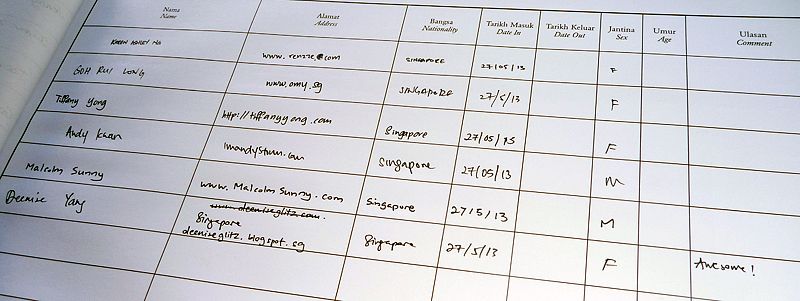 Nama Alamat Bangsa Tarikh Masuk Tarikh Keluar Jantina Umur Ulasan
Name Address Nationality Date In Date Out Sex Age Comment
www.renzze.com SINGAPORE 27/05/13 F
GOH RUI LONG www.omy.sg SINGAPORE 27/5/13 F
Tiffany Yong http://tiffanyyong.com Singapore 27/05/13 F
Andy Kwan Singapore 27/05/13 M
Malcolm Sunny www.Malcolmsunny.com Singapore 27/5/13 M
Deenise Yang www.deeniseglitz.com.
Singapore
deeniseglitz.blogspot.sg Singapore 27/5/13 F Awesome!